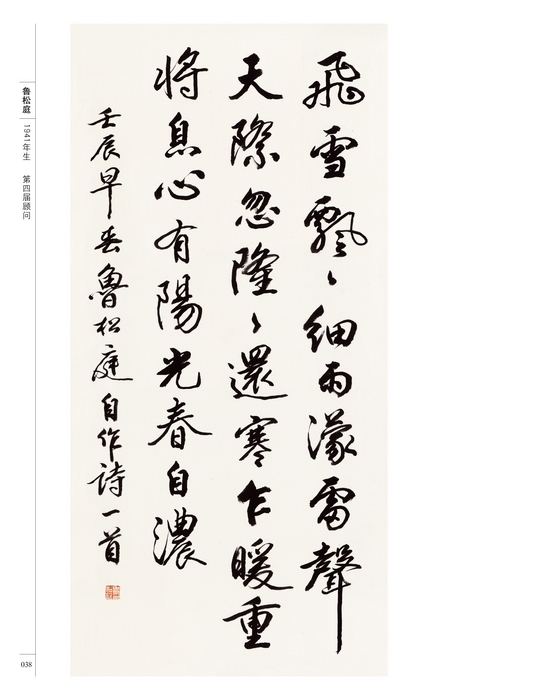 飛雪飄〻細雨濛雷聲
天際忽隆〻還寒乍暖重
將息心有陽光春自濃
壬辰早春魯松庭自作詩一首
鲁松庭
1941年生 第四届顾问
038